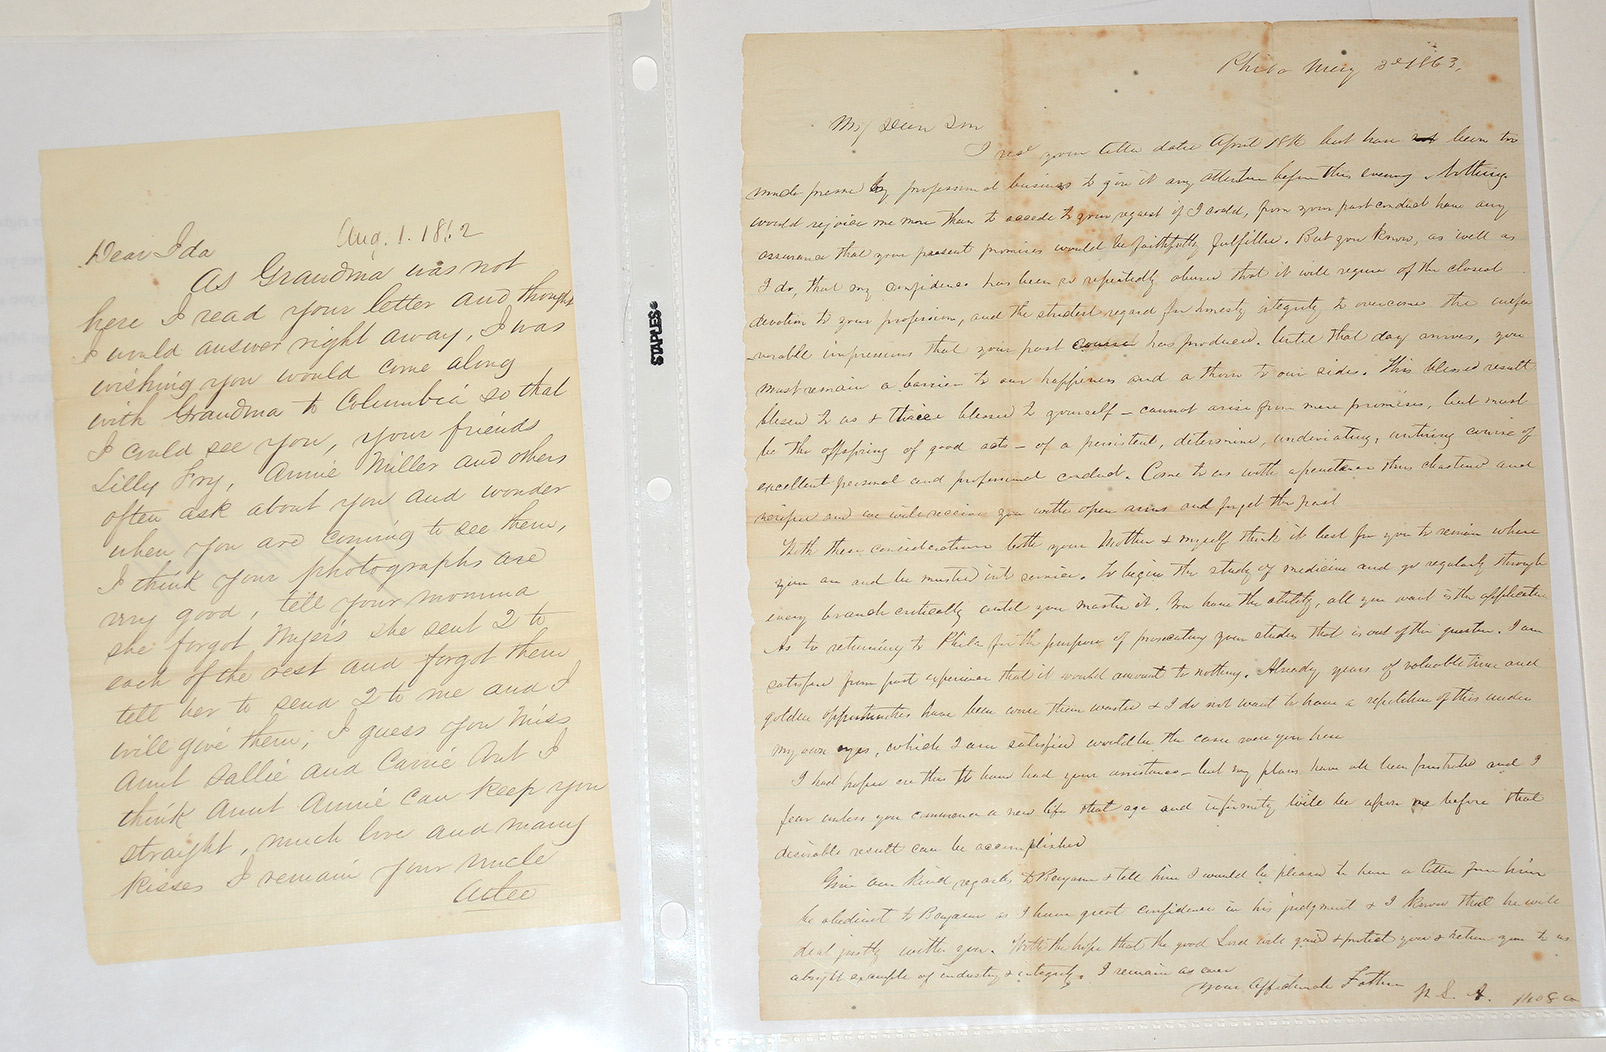 Aug. 1. 1862
Dear Ida
As Grandma was not
here I read your letter and thought
I would answer right away, I was
wishing you would come along
with Grandma to Columbia so that
I could see you, your friends
Lilly Fry, Annie Miller and others
often ask about you and wonder
when you are coming to see them,
I think your photographs are
very good, tell your momma
she forgot Myers she sent 2 to
each of the rest and forgot them
tell her to send 2 to me and I
will give them; I guess you miss
Aunt Sallie and Carrie but I
think Aunt Annie can keep you
straight, much love and many
kisses I remain your uncle
STAPLES
Phila May 2d 1863.
My Dear Son
I recd your letter dated April 18th but have not been too
much pressed by professional business to give it any attention before this evening. Nothing
would rejoice me more than to accede to your request if I could, from your past conduct have any
assurance that your present promises would be faithfully fulfilled. But you know, as well as
I do, that my confidence has been so repeatedly abused that it will require of the closest
devotion to your profession, and the strictest regard for honesty integrity to overcome the unfa
vorable impressions that your past course has produced. Until that day arrives, you
must remain a barrier to our happiness and a thorn to our side. This blessed result
blessed to us & thrice blessed to yourself – cannot arise from mere promises, but must
be the offspring of good acts – of a persistent, determined, undeviating, untiring course of
excellent personal and professional conduct. Come to us with a penitence thus chastened and
and we will receive you with open arms and forget the past
With these considerations both your Mother & myself think it best for you to remain where
you are and be mustered into service. To begin the study of medicine and go regularly through
every branch critically until you master it. You have the ability, all you want is the application
As to returning to Phila for the purpose of prosecuting your studies that is out of the question. I am
satisfied from past experience that it would amount to nothing. Already years of valuable time and
golden opportunities have been worse than wasted & I do not want to have a repetition of this under
my own eyes, which I am satisfied would be the case were you here
I had hoped ere this to have had your assistance – but my plans have all been frustrated and I
fear unless you commence a new life that age and infirmity will be upon me before that
desirable result can be accomplished
Give our kind regards to Benjamin & tell him I would be pleased to have a letter from him
be obedient to Benjamin as I have great confidence in his judgment & I know that he will
deal justly with you. With the hope that the good Lord will guard & protect you & return you to us
a bright example of industry & integrity. I remain as ever
your affectionate Father